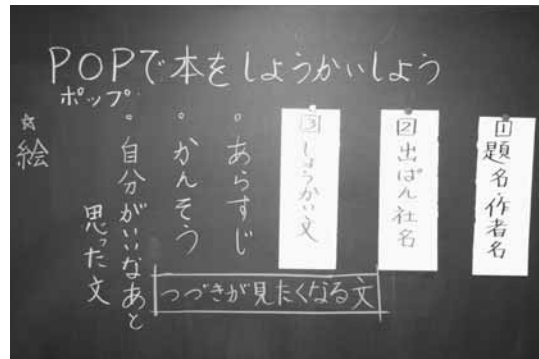 POPで本をしょうかいしよう
ポップ
1 題名・作者名
2 出ぱん社名
3 しょうかい文
。あらすじ
。かんそう
。自分がいいなあと
思った文
つづきが見たくなる文
☆絵